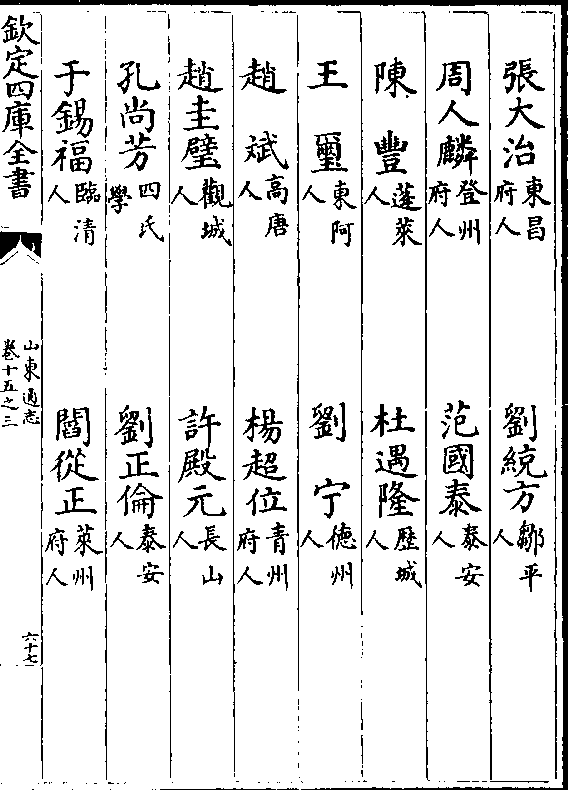 張大治東昌府人　劉統方鄒平人
周人麟登州府人　范國泰泰安人
陳豐蓬萊人　杜遇隆歷城人
王璽東阿人　劉宁德州人
趙斌高唐人　楊超位青州府人
趙圭璧觀城人　許殿元長山人
孔尚芳四氏學　劉正倫泰安人
于錫福臨清人　閻從正萊州府人
欽定四庫全書
山東通志
卷十五之三
六十七